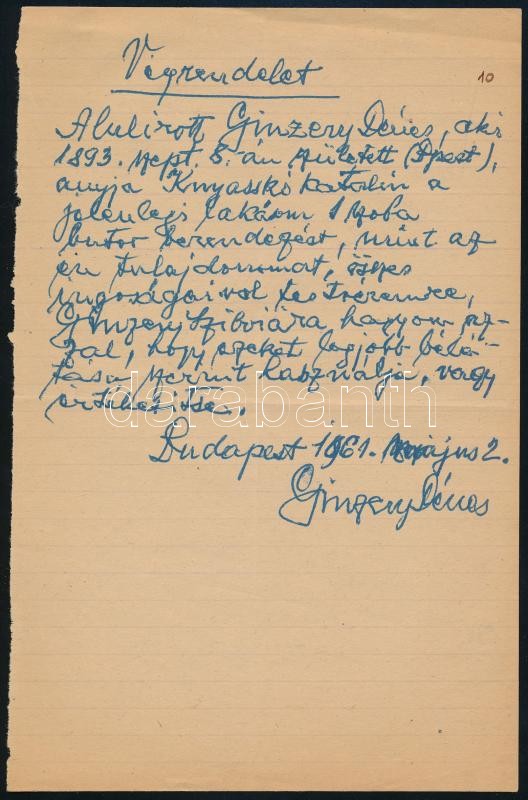 Végrendelet
10
Alulirott Ginzery Dénes, aki
1893. szept. 5.-án született (Bpest),
anyja Knyasskó Katalin a
jelenlegi lakásom 1 szoba
butor berendezést, mint az
én tulajdonomat, összes
ingoságaival testvéremre,
Ginzery Szilviára hagyom az-
zal, hogy ezeket legjobb belá-
tása szerint használja, vagy
értékesítse.
darabanth
Budapest 1961. május 2.
Ginzery Dénes